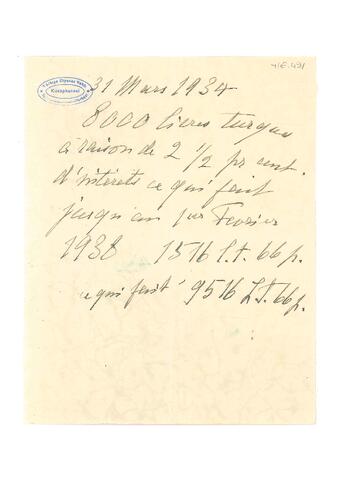 YİE.491
Türkiye Diyanet Vakfı
Kütüphanesi
31 Mars 1934
8000 livres turques
à raison de 2 1/2 pr cent.
d'intérêts ce qui fait
jusqu'au 1er Fevrier
1938 1516 L.T. 66 p.
ce qui fait 9516 L.T. 66 p.